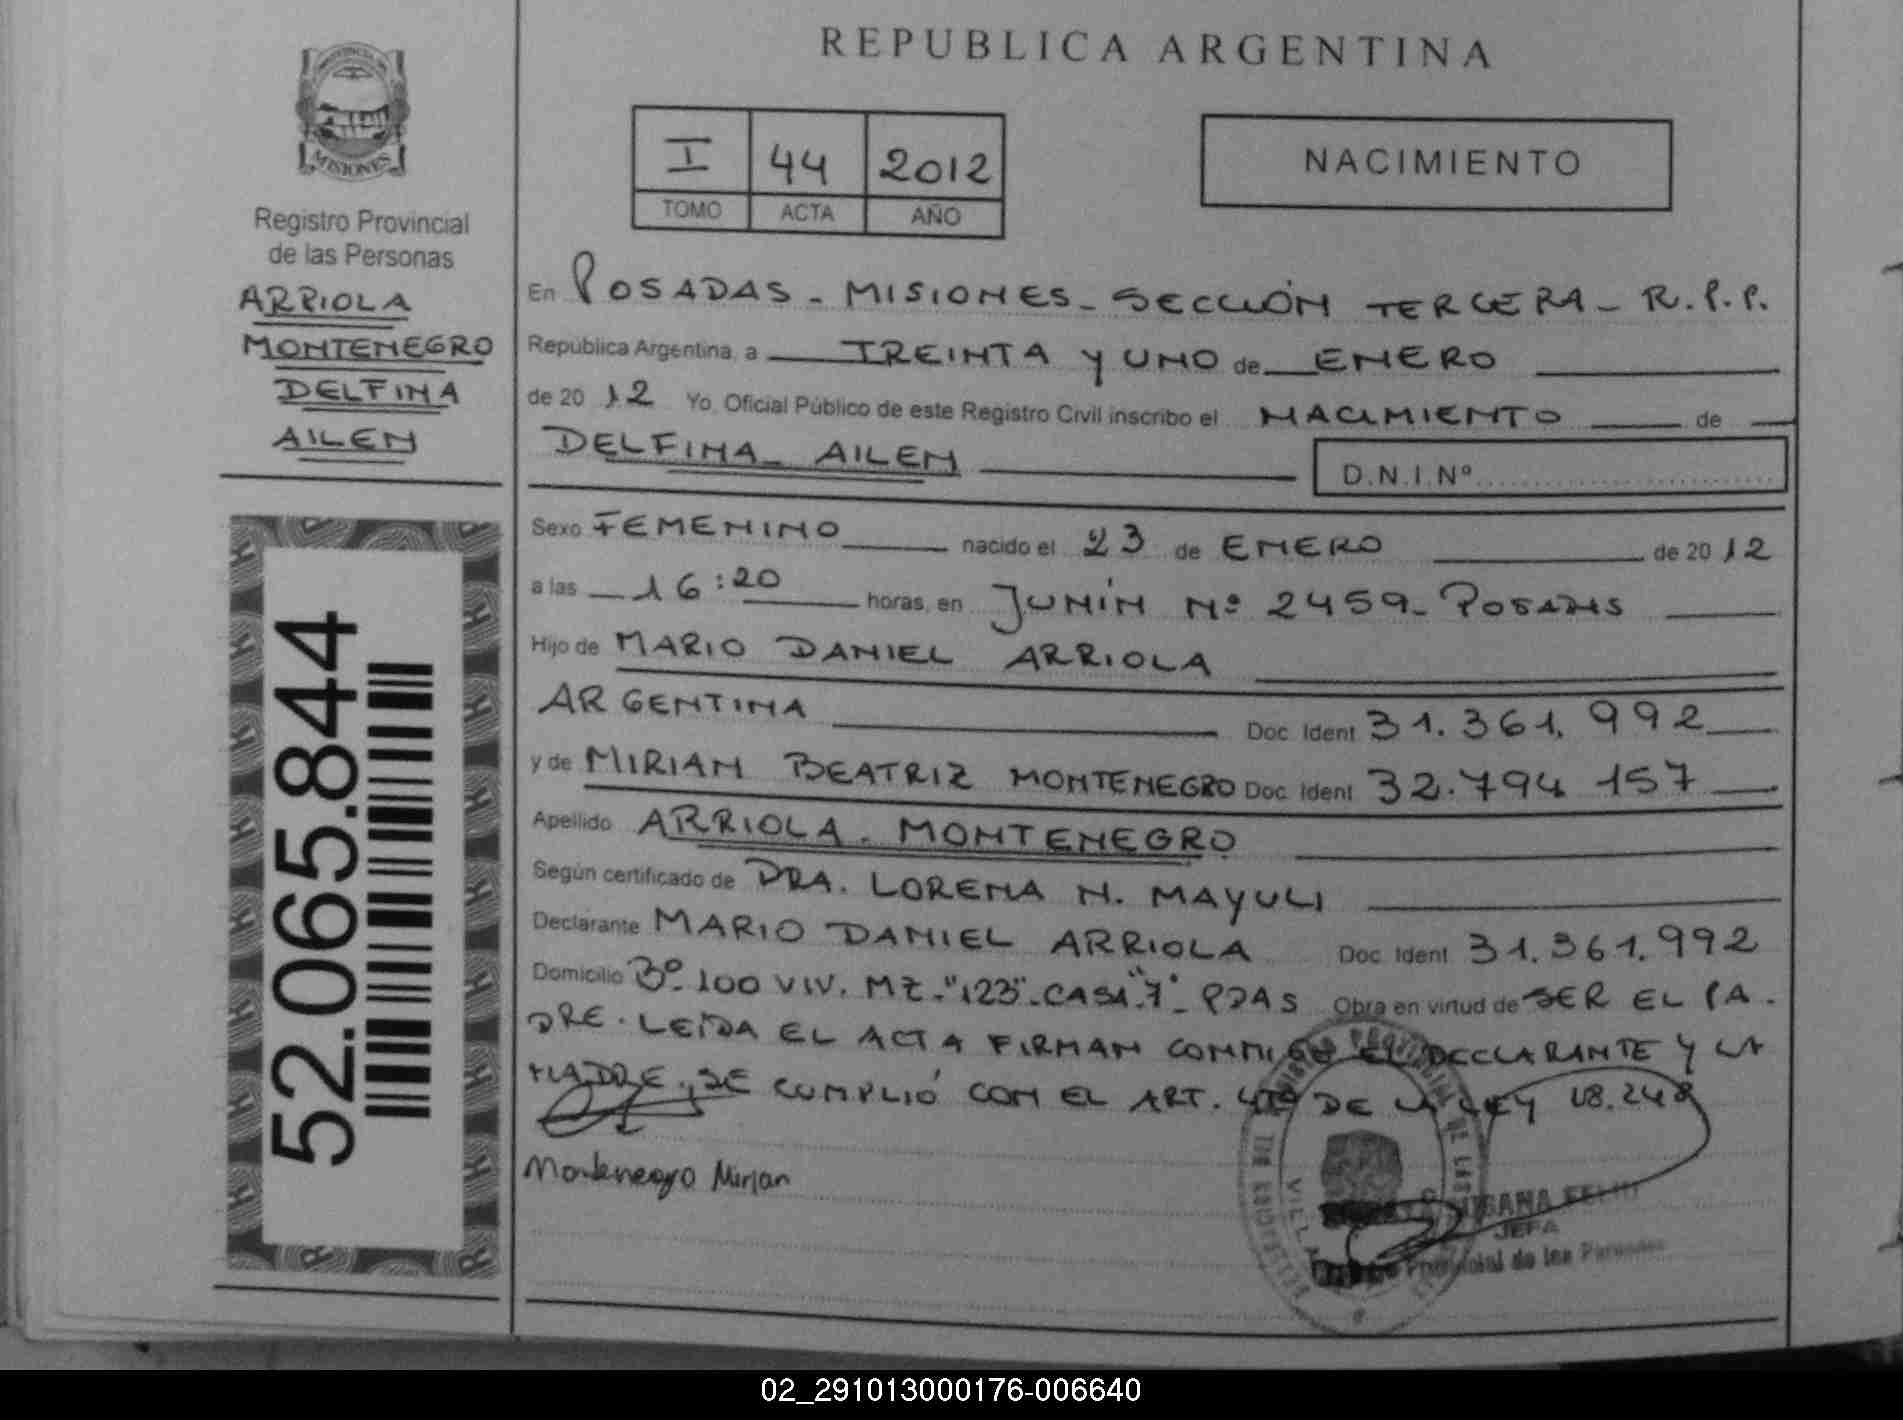 REPUBLICA ARGENTINA
PROVINCIA DE
MISIONES
Registro Provincial
de las Personas
ARRIOLA
MONTENEGRO
DELFINA
AILEN
52.065.844
I 44 2012
TOMO ACTA AÑO
NACIMIENTO
En POSADAS - MISIONES - SECCIÓN TERCERA - R.P.P.
República Argentina, a TREINTA Y UNO de ENERO
de 2012 Yo, Oficial Público de este Registro Civil inscribo el NACIMIENTO de
DELFINA AILEN D.N.I.Nº
Sexo FEMENINO nacido el 23 de ENERO de 2012
a las 16:20 horas, en JUNÍN Nº 2459 - POSADAS
Hijo de MARIO DANIEL ARRIOLA
ARGENTINA Doc. Ident. 31.361.992
y de MIRIAN BEATRIZ MONTENEGRO Doc. Ident. 32.794 157
Apellido ARRIOLA - MONTENEGRO
Según certificado de DRA. LORENA N. MAYULI
Declarante MARIO DANIEL ARRIOLA Doc. Ident. 31.361.992
Domicilio Bº 100 VIV. MZ. "123" - CASA "7" - PDAS Obra en virtud de SER EL PA-
DRE. LEÍDA EL ACTA FIRMAN CONMIGO EL DECLARANTE Y LA
MADRE. SE CUMPLIÓ CON EL ART. 4TO DE LA LEY 18.248
Montenegro Mirian
SUSANA
JEFA
Provincial de las Personas
02_291013000176-006640